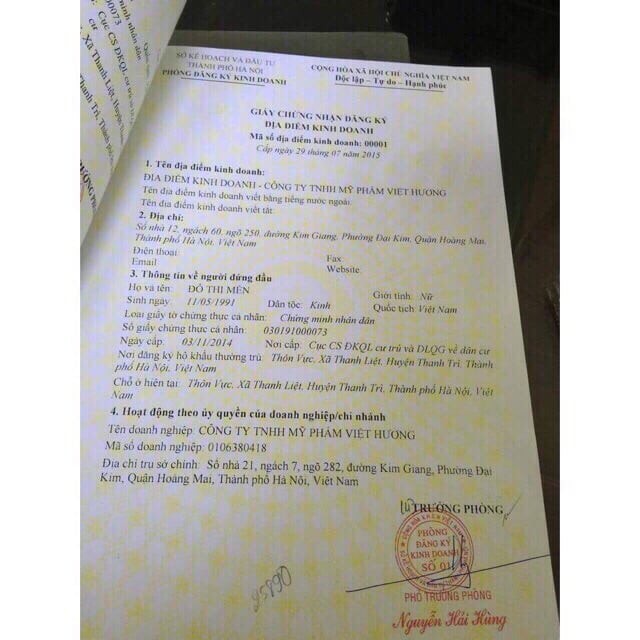 000073
Cục CS ĐKQL cư trú
Xã Thanh Liệt, Huyện
Thanh Trì, Thành
SỞ KẾ HOẠCH VÀ ĐẦU TƯ
THÀNH PHỐ HÀ NỘI
PHÒNG ĐĂNG KÝ KINH DOANH
CỘNG HÒA XÃ HỘI CHỦ NGHĨA VIỆT NAM
Độc lập – Tự do – Hạnh phúc
GIẤY CHỨNG NHẬN ĐĂNG KÝ
ĐỊA ĐIỂM KINH DOANH
Mã số địa điểm kinh doanh: 00001
Cấp ngày 29 tháng 07 năm 2015
1. Tên địa điểm kinh doanh:
ĐỊA ĐIỂM KINH DOANH - CÔNG TY TNHH MỸ PHẨM VIỆT HƯƠNG
Tên địa điểm kinh doanh viết bằng tiếng nước ngoài:
Tên địa điểm kinh doanh viết tắt:
2. Địa chỉ:
Số nhà 12, ngách 60, ngõ 250, đường Kim Giang, Phường Đại Kim, Quận Hoàng Mai,
Thành phố Hà Nội, Việt Nam
Điện thoại: Fax
Email Website:
3. Thông tin về người đứng đầu
Họ và tên: ĐỖ THỊ MẾN Giới tính: Nữ
Sinh ngày: 11/05/1991 Dân tộc: Kinh Quốc tịch: Việt Nam
Loại giấy tờ chứng thực cá nhân: Chứng minh nhân dân
Số giấy chứng thực cá nhân: 030191000073
Ngày cấp: 03/11/2014 Nơi cấp: Cục CS ĐKQL cư trú và DLQG về dân cư
Nơi đăng ký hộ khẩu thường trú: Thôn Vực, Xã Thanh Liệt, Huyện Thanh Trì, Thành
phố Hà Nội, Việt Nam
Chỗ ở hiện tại: Thôn Vực, Xã Thanh Liệt, Huyện Thanh Trì, Thành phố Hà Nội, Việt
Nam
4. Hoạt động theo ủy quyền của doanh nghiệp/chi nhánh
Tên doanh nghiệp: CÔNG TY TNHH MỸ PHẨM VIỆT HƯƠNG
Mã số doanh nghiệp: 0106380418
Địa chỉ trụ sở chính: Số nhà 21, ngách 7, ngõ 282, đường Kim Giang, Phường Đại
Kim, Quận Hoàng Mai, Thành phố Hà Nội, Việt Nam
TRƯỞNG PHÒNG
PHÒNG
ĐĂNG KÝ
KINH DOANH
SỐ 01
PHÓ TRƯỞNG PHÒNG
Nguyễn Hải Hùng